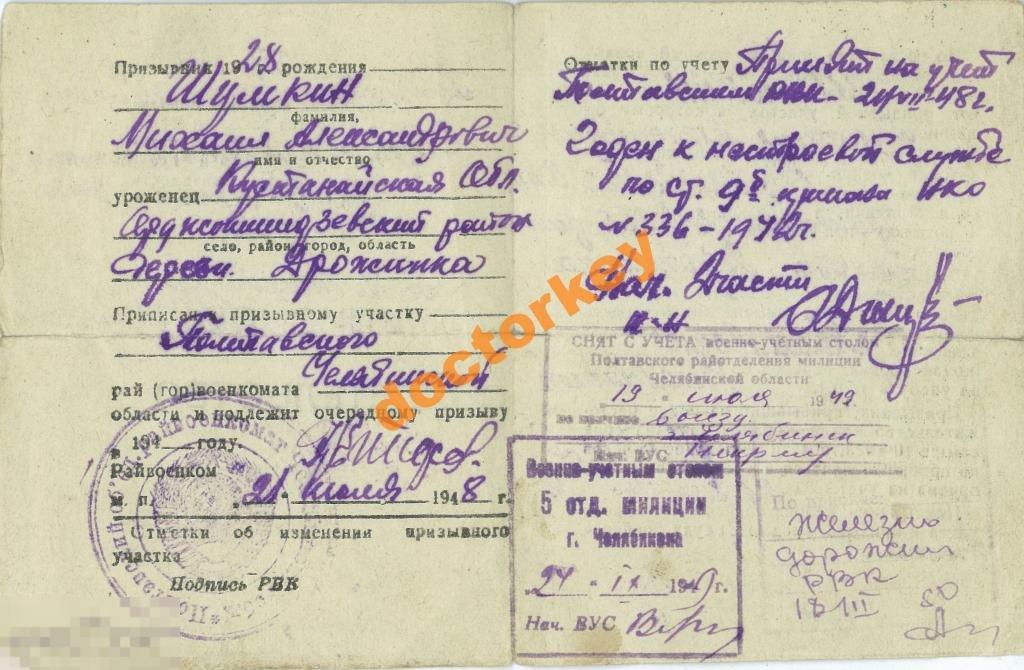 Призывник 1928 г. рождения
Шумкин
фамилия,
Михаил Александрович
имя и отчество
уроженец Кустанайская Обл.
Орджоникидзевский район
село, район, город, область
Дрожинка
Приписан к призывному участку
Полтавского
рай (гор)военкомата Челябинской
области и подлежит очередному призыву
в 194 году.
Райвоенком
м. п. „21“ июля 1948 г.
Отметки об изменении призывного
участка
Подпись РВК
Отметки по учету Принят на учет
Полтавским 21/VII-48 г.
Годен к нестроевой службе
по ст. 9б приказа НКО
№ 336 - 1942 г.
Нач. 2 части
СНЯТ С УЧЕТА военно-учётным столом
Полтавского райотделения милиции
Челябинской области
19 июля 1949
по причине выезд
Челябинск
Нач. ВУС
Военно-учетным столом
5 отд. милиции
г. Челябинска
„24“ IX 1949 г.
Нач. ВУС
По
Железно
дорожным
РВК
18 III 50
doctorkey